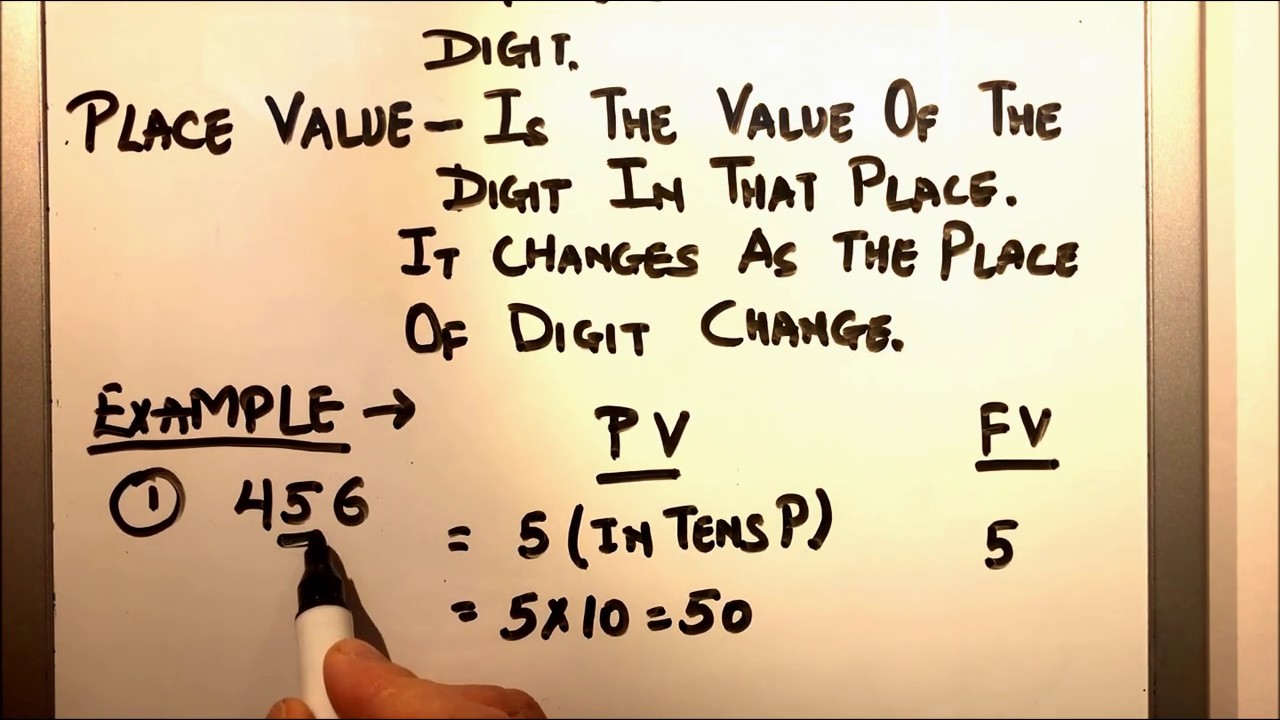 DIGIT.
PLACE VALUE - IS THE VALUE OF THE
DIGIT IN THAT PLACE.
IT CHANGES AS THE PLACE
OF DIGIT CHANGE.
EXAMPLE → PV FV
① 456 = 5 (IN TENS P) 5
= 5×10=50